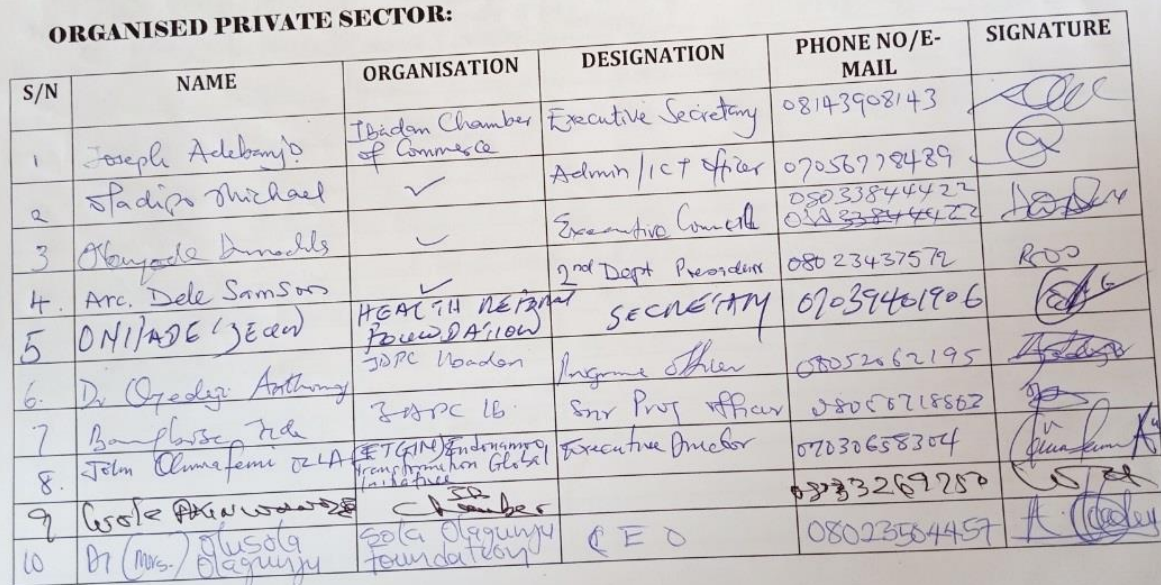 ORGANISED PRIVATE SECTOR:
S/N NAME ORGANISATION DESIGNATION PHONE NO/E-MAIL SIGNATURE
1 Joseph Adebanjo Ibadan Chamber of Commerce Executive Secretary 08143908143
2 Oladipo Michael ✓ Admin/ICT Officer 07056778489
3 ✓ Executive Council 08033844422
4. Arc. Dele Samson ✓ 2nd Dept President 08023437572
5 HEALTH REFORM FOUNDATION SECRETARY 07039401906
6. Dr Anthony JDPC Ibadan Programe Officer 08052062195
7 Bamgbose JDPC Ib. Snr Prog Officer
8. John Olumafemi (ETGIN) Transformation Global Initiative Executive Director 07030658304
9 Chamber
10 Dr (Mrs.) Olusola Olagunju Sola Olagunju Foundation CEO 08023504457